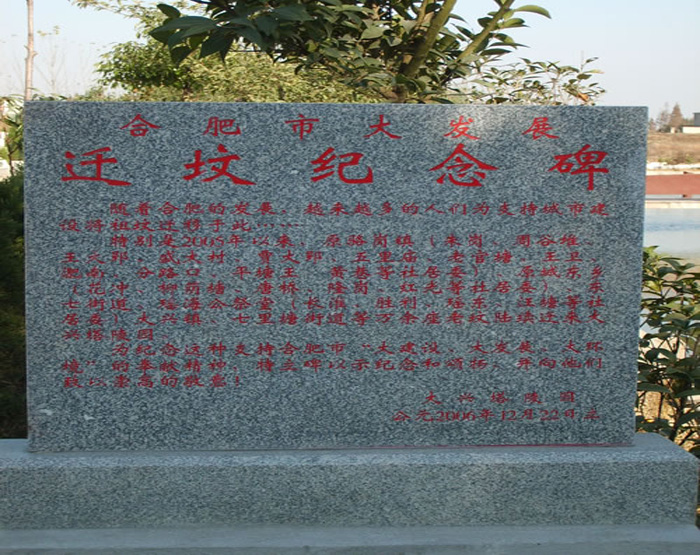 合肥市大发展
迁坟纪念碑
随着合肥的发展，越来越多的人们为支持城市建
设将祖坟迁移于此……
特别是2005年以来，原骆岗镇（朱岗、周谷堆、
王大郢、盛大村、贾大郢、五里庙、老官塘、王卫、
淝南、分路口、平塘王、黄巷等社居委）、原城东乡
（花冲、柳荫塘、唐桥、隆岗、红光等社居委）、东
七街道、瑶海公祭堂（长淮、胜利、瑶东、汪塘等社
居委）、大兴镇、七里塘街道等万余座老坟陆续迁来大
兴塔陵园
为纪念这种支持合肥市“大建设、大发展、大环
境”的奉献精神，特立碑以示纪念和颂扬，并向他们
致以崇高的敬意！
大兴塔陵园
公元2006年12月22日立